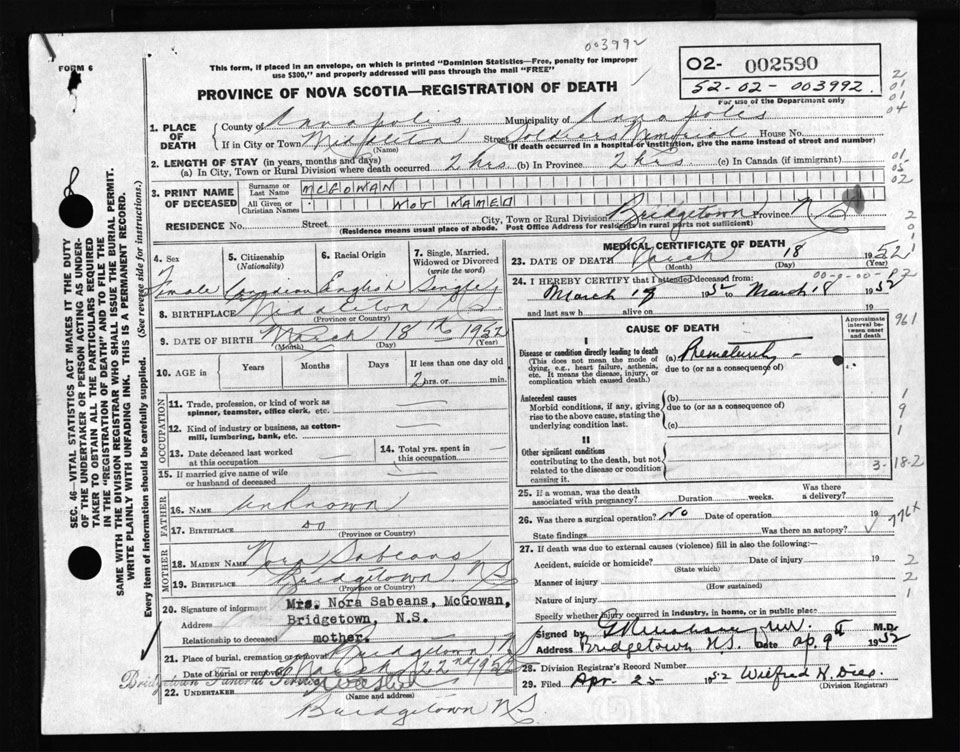 003992
FORM 6
This form, if placed in an envelope, on which is printed "Dominion Statistics—Free, penalty for improper
use $300," and properly addressed will pass through the mail "FREE"
O2- 002590
52-02-003992
For use of the Department only
PROVINCE OF NOVA SCOTIA—REGISTRATION OF DEATH
2
01
01
04
1. PLACE OF DEATH
County of Annapolis Municipality of Annapolis
If in City or Town Middleton Street Soldiers Memorial House No.
(Name) (If death occurred in a hospital or institution, give the name instead of street and number)
2. LENGTH OF STAY (in years, months and days)
(a) In City, Town or Rural Division where death occurred 2 hrs. (b) In Province 2 hrs. (c) In Canada (if immigrant)
01
05
02
3. PRINT NAME OF DECEASED
Surname or Last Name McGOWAN
All Given or Christian Names NOT NAMED
RESIDENCE No. Street City, Town or Rural Division Bridgetown Province N S
(Residence means usual place of abode. Post Office Address for residents in rural parts not sufficient)
4. Sex
Female
5. Citizenship (Nationality)
Canadian
6. Racial Origin
English
7. Single, Married, Widowed or Divorced (write the word)
Single
8. BIRTHPLACE N S
(Province or Country)
9. DATE OF BIRTH March 18th 1952
(Month) (Day) (Year)
10. AGE in Years Months Days If less than one day old
2 hrs. or min.
OCCUPATION
11. Trade, profession, or kind of work as
spinner, teamster, office clerk, etc.
12. Kind of industry or business, as cotton-
mill, lumbering, bank, etc.
13. Date deceased last worked
at this occupation
14. Total yrs. spent in
this occupation
15. If married give name of wife
or husband of deceased
FATHER
16. NAME unknown
17. BIRTHPLACE do
(Province or Country)
MOTHER
18. MAIDEN NAME Nora Sabeans
19. BIRTHPLACE Bridgetown N S
(Province or Country)
20. Signature of informant Mrs. Nora Sabeans, McGowan,
Address Bridgetown, N.S.
Relationship to deceased mother.
21. Place of burial, cremation or removal Bridgetown N S
Date of burial or removal March 22nd 1952
Bridgetown Funeral Service
22. UNDERTAKER
(Name and address)
Bridgetown N S.
MEDICAL CERTIFICATE OF DEATH
23. DATE OF DEATH March 18 1952
(Month) (Day) (Year)
24. I HEREBY CERTIFY that I attended deceased from:
March 18 1952 to March 18 1952
and last saw h alive on 19
CAUSE OF DEATH
Approximate interval between onset and death
I
Disease or condition directly leading to death
(This does not mean the mode of
dying, e.g., heart failure, asthenia,
etc. It means the disease, injury, or
complication which caused death.)
(a) Prematurity
due to (or as a consequence of)
Antecedent causes
Morbid conditions, if any, giving
rise to the above cause, stating the
underlying condition last.
(b)
due to (or as a consequence of)
(c)
II
Other significant conditions
contributing to the death, but not
related to the disease or condition
causing it.
961
1
9
1
3-18-2
25. If a woman, was the death
associated with pregnancy? Duration weeks. Was there
a delivery?
26. Was there a surgical operation? No Date of operation 19
State findings Was there an autopsy?
776x
27. If death was due to external causes (violence) fill in also the following:—
Accident, suicide or homicide? Date of injury 19
(State which)
Manner of injury
(How sustained)
Nature of injury
Specify whether injury occurred in industry, in home, or in public place
2
2
1
Signed by M.D.
Address Bridgetown N.S. Date Ap. 9 1952
28. Division Registrar's Record Number
29. Filed Apr. 25 1952 Wilfred
(Division Registrar)
SEC. 46—VITAL STATISTICS ACT MAKES IT THE DUTY
OF THE UNDERTAKER OR PERSON ACTING AS UNDER-
TAKER TO OBTAIN ALL THE PARTICULARS REQUIRED
IN THE "REGISTRATION OF DEATH" AND TO FILE THE
SAME WITH THE DIVISION REGISTRAR WHO SHALL ISSUE THE BURIAL PERMIT.
WRITE PLAINLY WITH UNFADING INK. THIS IS A PERMANENT RECORD.
Every item of information should be carefully supplied. (See reverse side for instructions.)